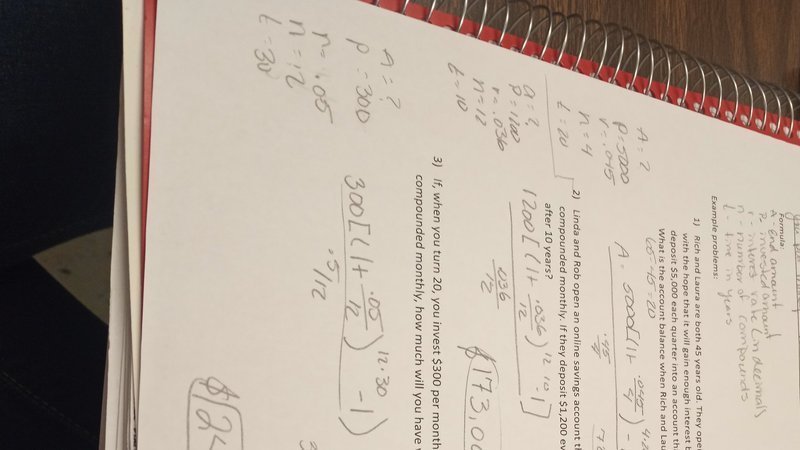 Formula:
A - end amount
P - invested amount
r - interest rate (in decimal)
n - number of compounds
t - time in years
Example problems:
1) Rich and Laura are both 45 years old. They open
with the hope that it will gain enough interest b
deposit $5,000 each quarter into an account th
What is the account balance when Rich and Lau
65-45=20
A = ?
P = 5000
r = .0415
n = 4
t = 20
2) Linda and Rob open an online savings account th
compounded monthly. If they deposit $1,200 ev
after 10 years?
a = ?
p = 1200
r = .036
n = 12
t = 10
1200[(1+ .036/12)
.036/12
$173,0
3) If, when you turn 20, you invest $300 per month
compounded monthly, how much will you have
A = ?
P = 300
r = .05
n = 12
t = 30
300[(1+ .05/12) 12.30 -1)
.5/12